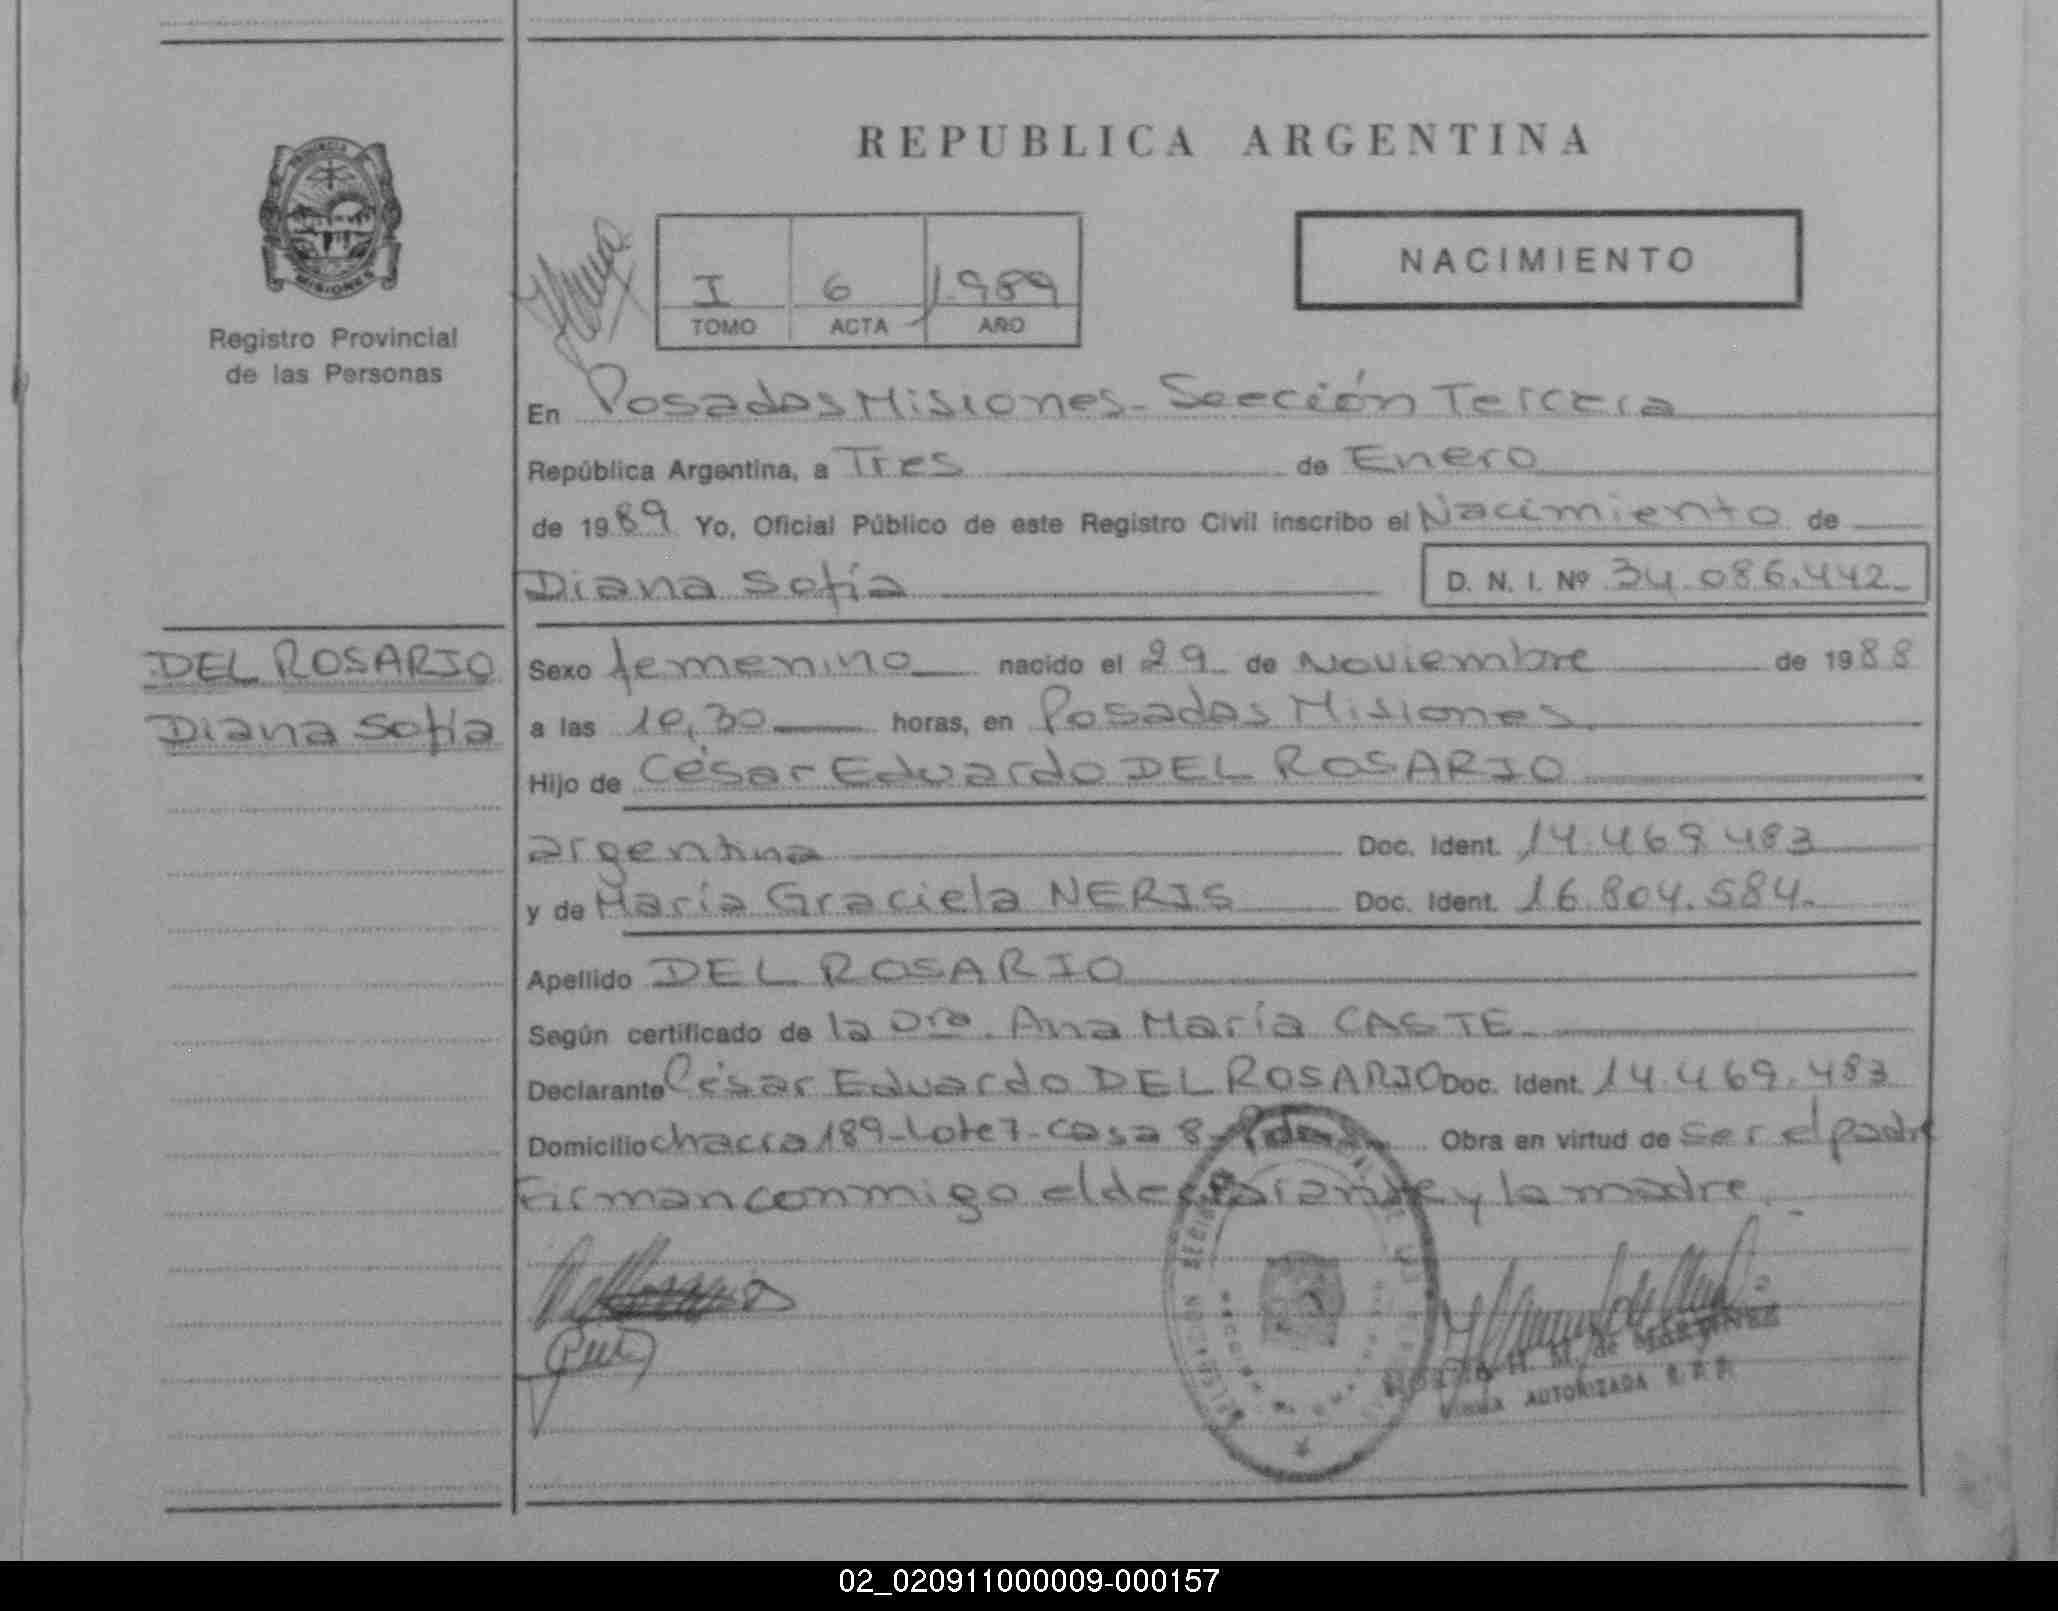 REPUBLICA ARGENTINA
PROVINCIA
MISIONES
Registro Provincial
de las Personas
I 6 1.989
TOMO ACTA AÑO
NACIMIENTO
En Posadas Misiones - Sección Tercera
República Argentina, a Tres de Enero
de 1989 Yo, Oficial Público de este Registro Civil inscribo el Nacimiento de
Diana Sofía D. N. I. Nº 34.086.442
DEL ROSARIO
Diana Sofía
Sexo femenino nacido el 29 de Noviembre de 1988
a las 10,30 horas, en Posadas Misiones
Hijo de César Eduardo DEL ROSARIO
argentina Doc. Ident. 14.469.483
y de María Graciela NERIS Doc. Ident. 16.804.584.
Apellido DEL ROSARIO
Según certificado de la Dra. Ana María CASTE
Declarante César Eduardo DEL ROSARIO Doc. Ident. 14.469.483
Domicilio chacra 189-Lote 7-casa 8- Obra en virtud de ser el padre
Firman conmigo el declarante y la madre.
H. M. de MARTINEZ
FIRMA AUTORIZADA R.P.P.
02_020911000009-000157